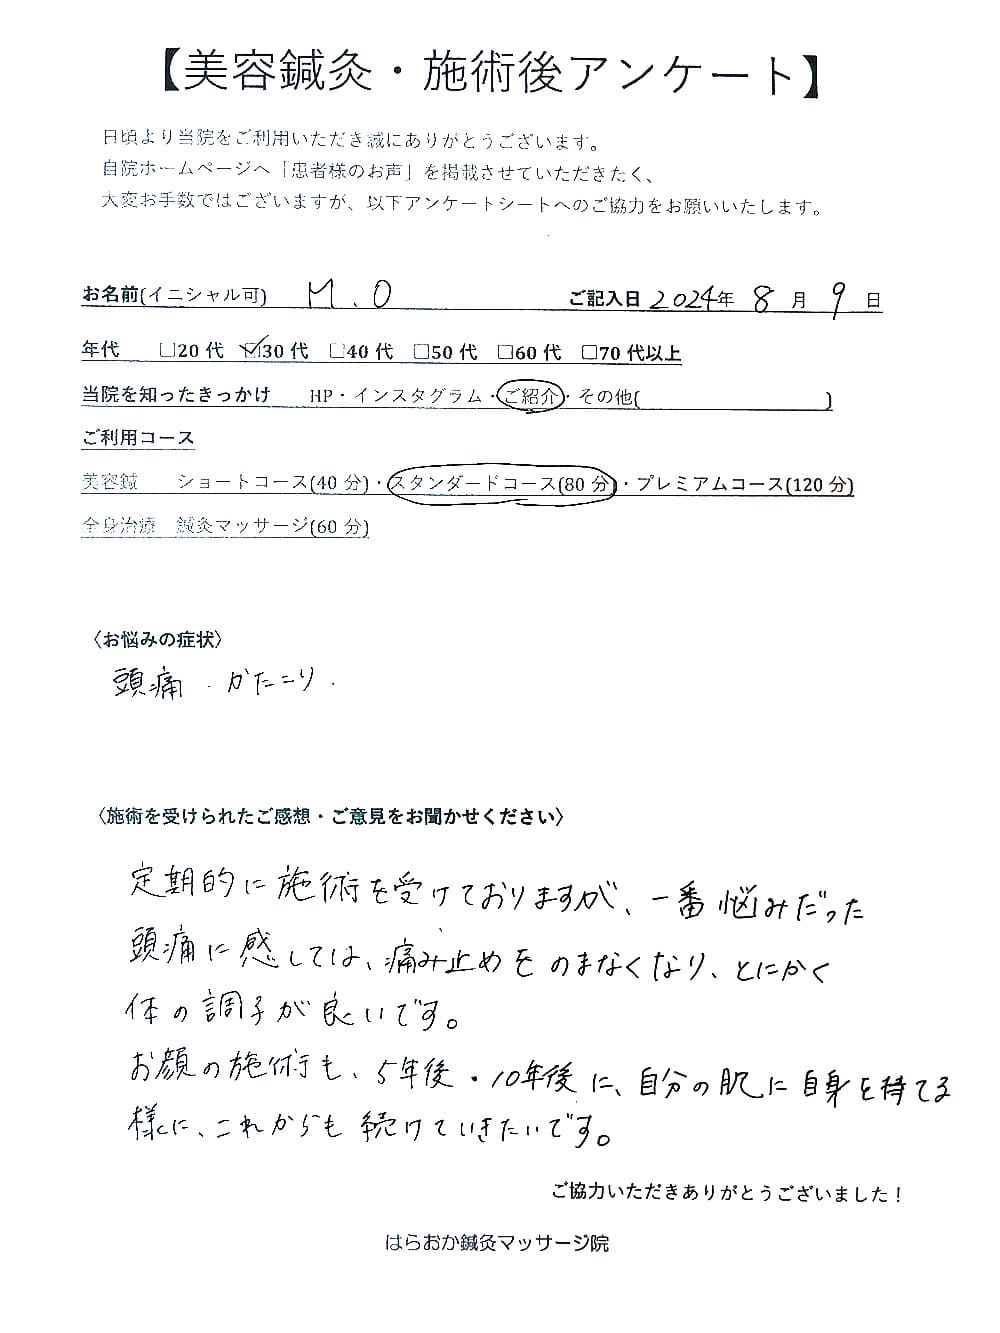 【美容鍼灸・施術後アンケート】
日頃より当院をご利用いただき誠にありがとうございます。
自院ホームページへ「患者様のお声」を掲載させていただきたく、
大変お手数ではございますが、以下アンケートシートへのご協力をお願いいたします。
お名前(イニシャル可) M.O ご記入日 2024年 8月 9日
年代 □20代 ☑30代 □40代 □50代 □60代 □70代以上
当院を知ったきっかけ HP・インスタグラム・ご紹介・その他( )
ご利用コース
美容鍼 ショートコース(40分)・スタンダードコース(80分)・プレミアムコース(120分)
全身治療 鍼灸マッサージ(60分)
〈お悩みの症状〉
頭痛 . かたこり .
〈施術を受けられたご感想・ご意見をお聞かせください〉
定期的に施術を受けておりますが、一番悩みだった
頭痛に感しては、痛み止めをのまなくなり、とにかく
体の調子が良いです。
お顔の施術も、5年後・10年後に、自分の肌に自身を持てる
様に、これからも続けていきたいです。
ご協力いただきありがとうございました！
はらおか鍼灸マッサージ院